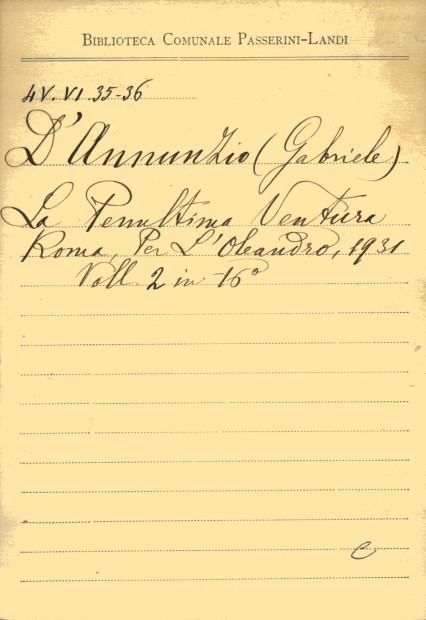 BIBLIOTECA COMUNALE PASSERINI-LANDI
4V.VI.35-36
D'Annunzio (Gabriele)
La Penultima Ventura
Roma, Per L'Oleandro, 1931
Voll. 2 in-16°
C